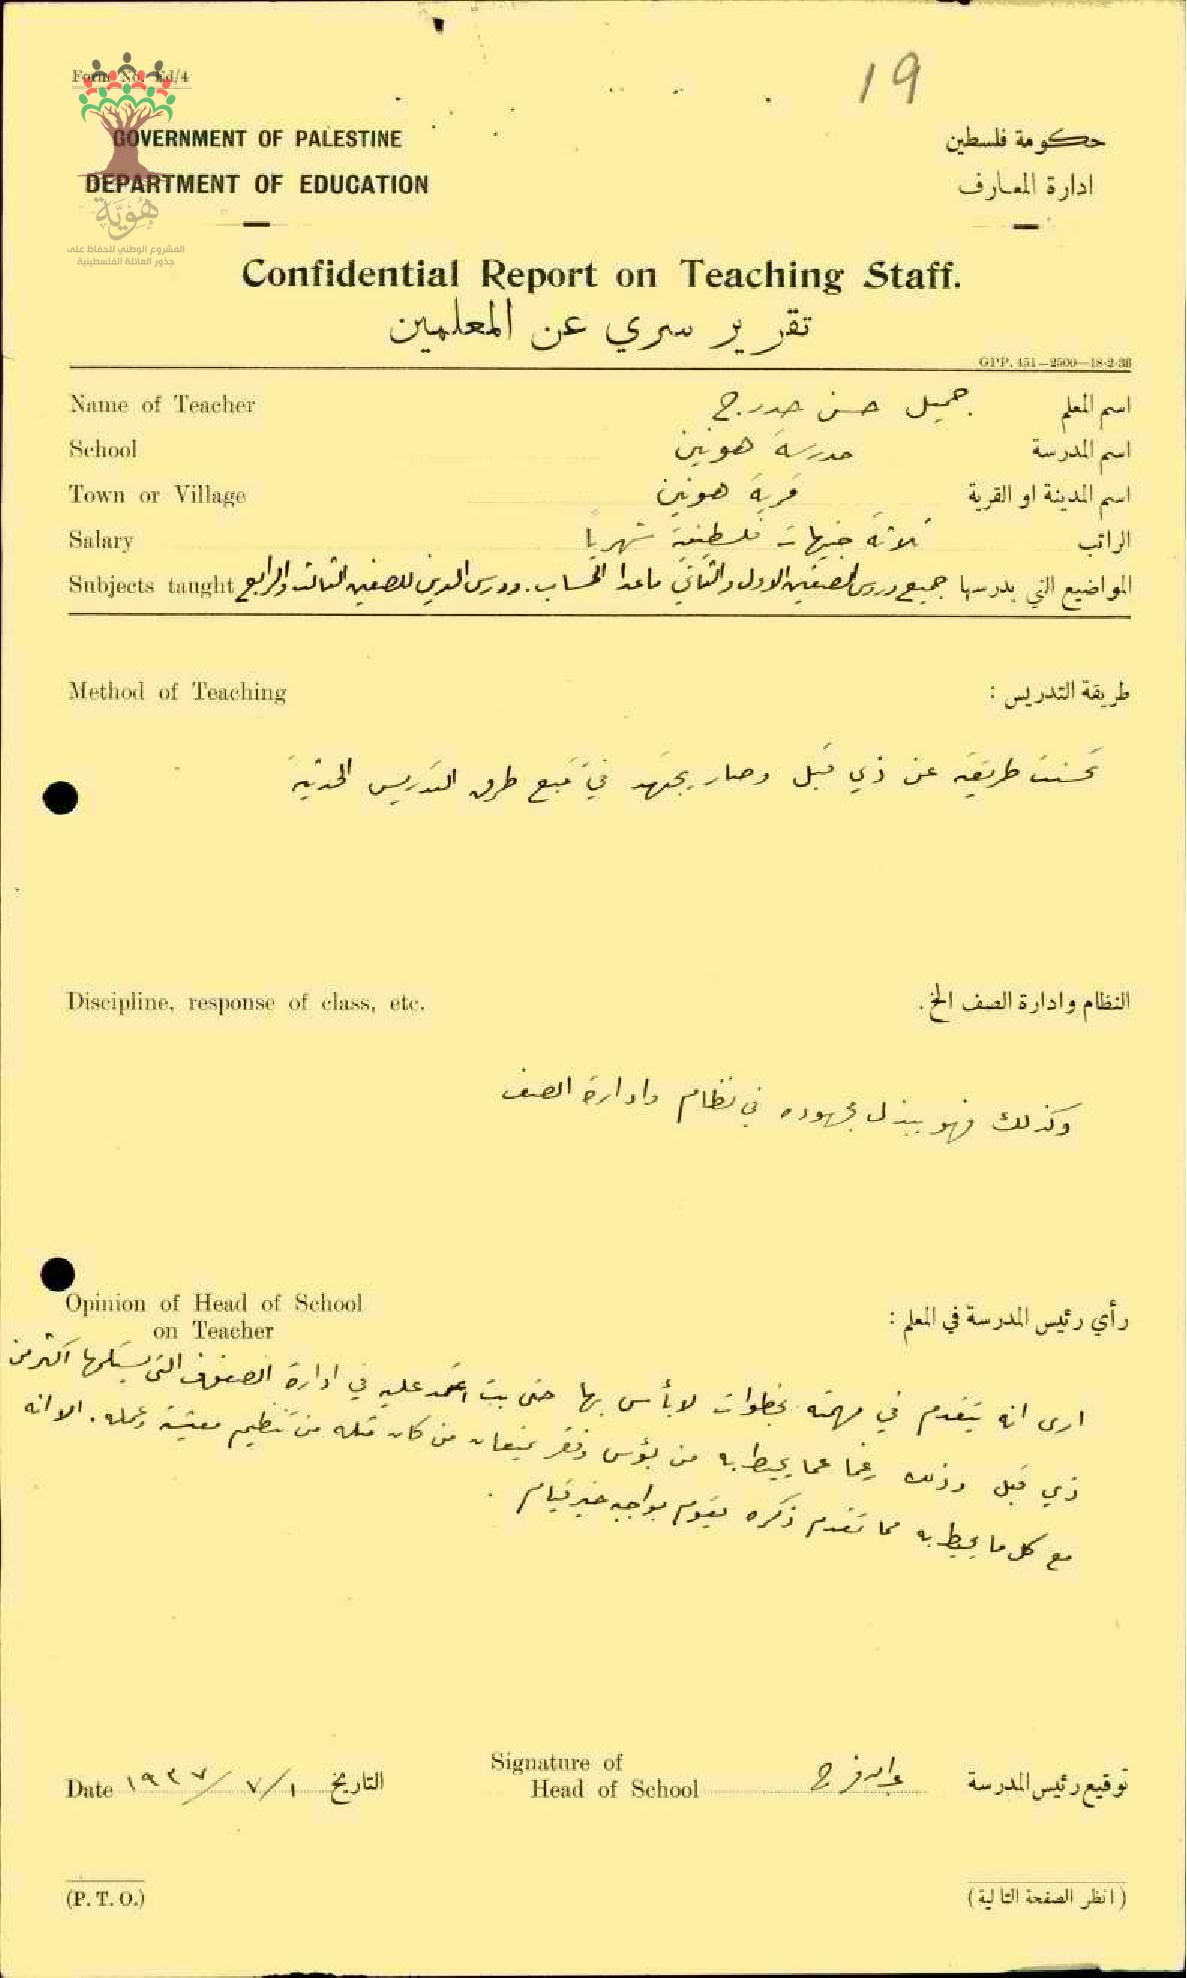 19
Form No. Ed/4
GOVERNMENT OF PALESTINE
حكومة فلسطين
DEPARTMENT OF EDUCATION
ادارة المعارف
هُوِيَّة
المشروع الوطني للحفاظ على
جذور العائلة الفلسطينية
Confidential Report on Teaching Staff.
تقرير سري عن المعلمين
GPP. 451—2500—18-2-36
Name of Teacher جميل حسن مدرج اسم المعلم
School مدرسة هونين اسم المدرسة
Town or Village قرية هونين اسم المدينة او القرية
Salary ثلاثة جنيهات فلسطينية شهرياً الراتب
Subjects taught المواضيع التي يدرسها جميع دروس الصفين الاول والثاني ما عدا الحساب. ودرس الدين للصفين الثالث والرابع
Method of Teaching طريقة التدريس :
تحسنت طريقته عن ذي قبل وصار يجتهد في تتبع طرق التدريس الحديثة
Discipline, response of class, etc. النظام وادارة الصف الخ.
وكذلك فهو يبذل مجهوده في نظام وادارة الصف
Opinion of Head of School
on Teacher
رأي رئيس المدرسة في المعلم :
ارى انه يتقدم في مهمته بخطوات لا بأس بها حتى بت اعتمد عليه في ادارة الصفوف التي يستلمها اكثر من
ذي قبل وذلك رغما عما يحيط به من بؤس وفقر يمنعان من كان مثله من تنظيم معيشته وعمله. الا انه
مع كل ما يحيط به مما تقدم ذكره يقوم بواجبه خير قيام .
Signature of
Head of School توقيع رئيس المدرسة
Date ١ / ٧ / ١٩٣٧ التاريخ
(P. T. O.)
(انظر الصفحة التالية)